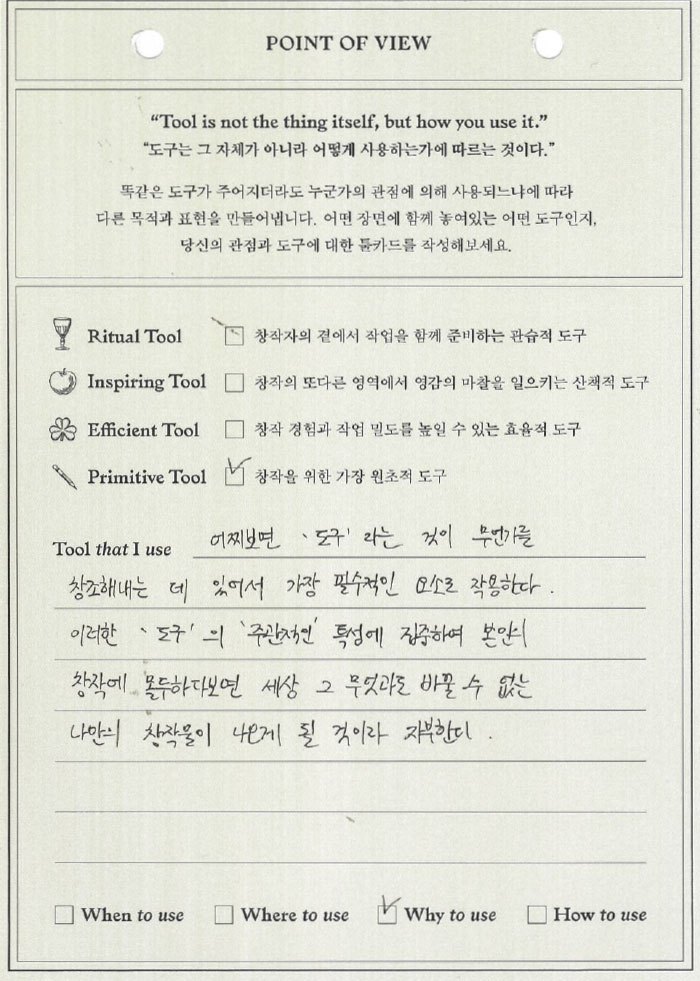 POINT OF VIEW
“Tool is not the thing itself, but how you use it.”
“도구는 그 자체가 아니라 어떻게 사용하는가에 따르는 것이다.”
똑같은 도구가 주어지더라도 누군가의 관점에 의해 사용되느냐에 따라
다른 목적과 표현을 만들어냅니다. 어떤 장면에 함께 놓여있는 어떤 도구인지,
당신의 관점과 도구에 대한 툴카드를 작성해보세요.
Ritual Tool 창작자의 곁에서 작업을 함께 준비하는 관습적 도구
Inspiring Tool 창작의 또다른 영역에서 영감의 마찰을 일으키는 산책적 도구
Efficient Tool 창작 경험과 작업 밀도를 높일 수 있는 효율적 도구
Primitive Tool 창작을 위한 가장 원초적 도구
Tool that I use 어찌보면 '도구' 라는 것이 무언가를
창조해내는 데 있어서 가장 필수적인 요소로 작용하다.
이러한 '도구'의 '주관적인' 특성에 집중하여 본인의
창작에 몰두하다보면 세상 그 무엇과도 바꿀 수 없는
나만의 창작물이 나오게 될 것이라 자부한다.
When to use Where to use Why to use How to use